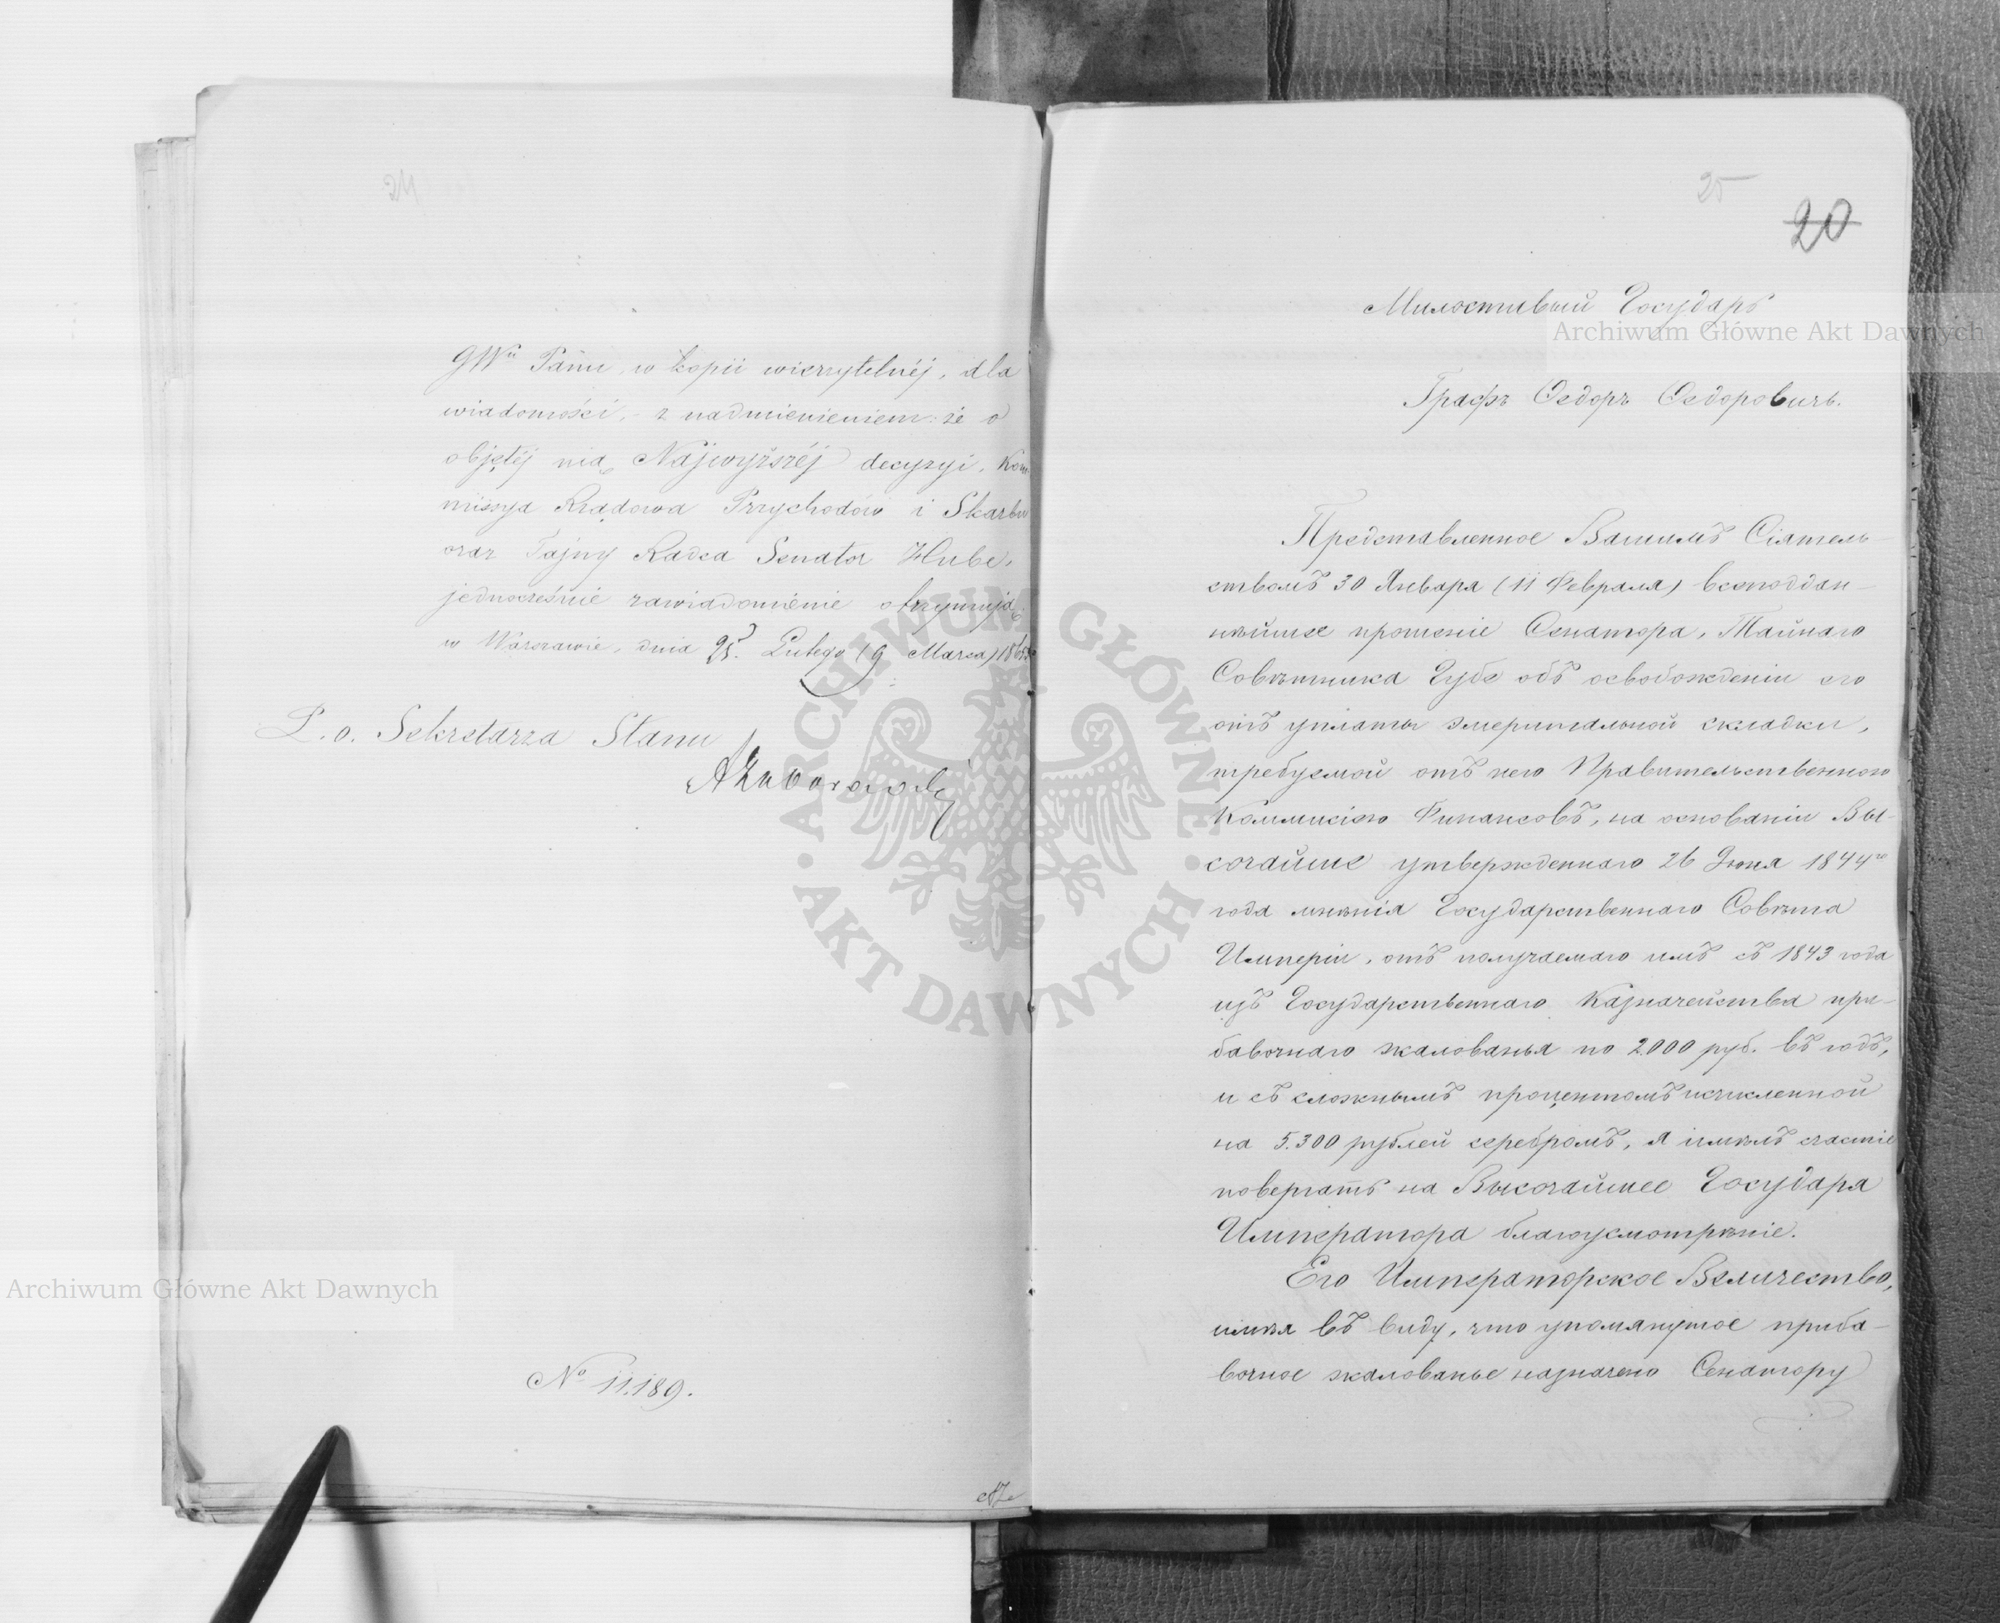 JWu Panu, w kopii wierzytelnéj, dla
wiadomości, z nadmienieniem: że o
objętéj nią Najwyższéj decyzyi, Kom-
missya Rządowa Przychodów i Skarbu
oraz Tajny Radca Senator Hube,
jednocześnie zawiadomienie otrzymują.
w Warszawie, dnia 25 Lutego (9 Marca) 186
P. o. Sekretarza Stanu
No 11.189.
25
20
Милостивый Государь
Графъ Федоръ Федоровичъ.
Представленное Вашимъ Сіятель-
ствомъ 30 Января (11 Февраля) всеподдан-
нѣйшее прошеніе Сенатора, Тайнаго
Совѣтника Губе объ освобожденіи его
отъ уплаты эмеритальной складки,
требуемой отъ него Правительственною
Коммисіею Финансовъ, на основаніи Вы-
сочайше утвержденнаго 26 Іюня 1844го
года мнѣнія Государственнаго Совѣта
Имперіи, отъ получаемаго имъ съ 1843 года
изъ Государственнаго Казначейства при-
бавочнаго жалованья по 2000 руб. въ годъ,
и съ сложнымъ процентомъ исчисленной
на 5.300 рублей серебромъ, я имѣлъ счастіе
повергать на Высочайшее Государя
Императора благоусмотрѣніе.
Его Императорское Величество,
имѣя въ виду, что упомянутое приба-
вочное жалованье назначено Сенатору
Archiwum Główne Akt Dawnych
Archiwum Główne Akt Dawnych
ARCHIWUM GŁÓWNE
AKT DAWNYCH